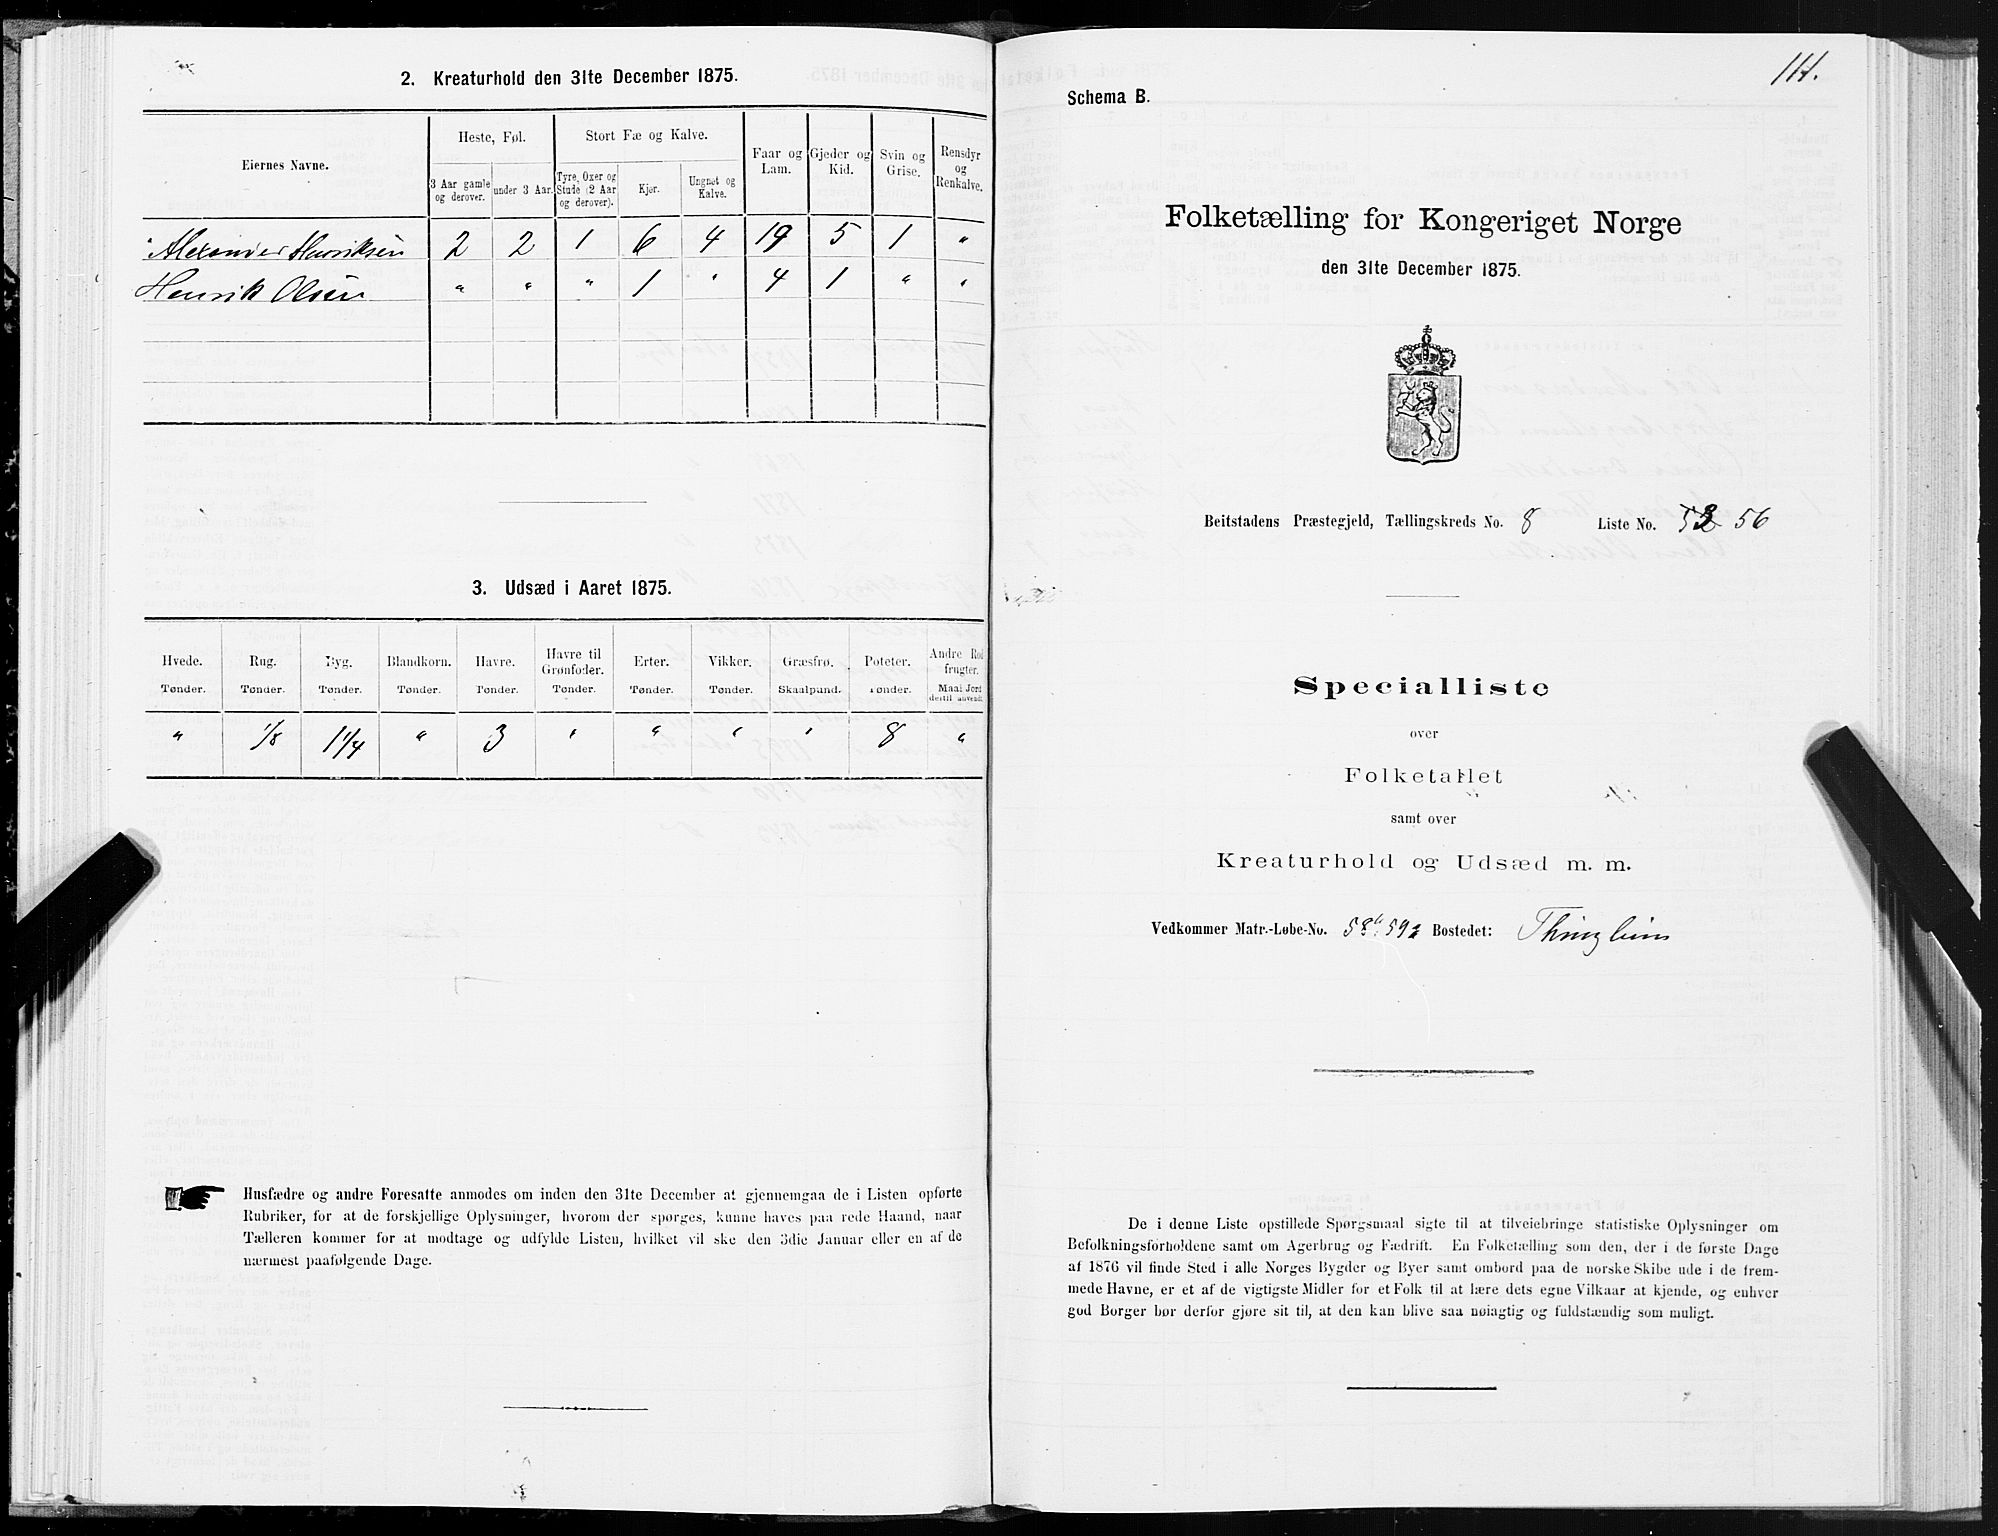 2. Kreaturhold den 31te December 1875.
Eiernes Navne.
Heste, Føl.
Stort Fæ og Kalve.
Faar og Lam.
Gjeder og Kid.
Svin og Grise.
Rensdyr og Renkalve.
3 Aar gamle og derover.
under 3 Aar.
Tyre, Oxer og Stude (2 Aar og derover).
Kjør.
Ungnøt og Kalve.
Alexander Henriksen 2 2 1 6 4 19 5 1 "
Henrik Olsen " " " 1 " 4 1 " "
3. Udsæd i Aaret 1875.
Hvede. Rug. Byg. Blandkorn. Havre. Havre til Grønfoder. Erter. Vikker. Græsfrø. Poteter. Andre Rodfrugter.
Tønder. Tønder. Tønder. Tønder. Tønder. Tønder. Tønder. Tønder. Skaalpund. Tønder. Maal Jord dertil anvendt
" 1/8 1 1/4 " 3 " " " " 8 "
Husfædre og andre Foresatte anmodes om inden den 31te December at gjennemgaa de i Listen opførte
Rubriker, for at de forskjellige Oplysninger, hvorom der spørges, kunne haves paa rede Haand, naar
Tælleren kommer for at modtage og udfylde Listen, hvilket vil ske den 3die Januar eller en af de
nærmest paafølgende Dage.
111.
Schema B.
Folketælling for Kongeriget Norge
den 31te December 1875.
Beitstadens Præstegjeld, Tællingskreds No. 8 Liste No. 56
Specialliste
over
Folketallet
samt over
Kreaturhold og Udsæd m. m.
Vedkommer Matr.-Løbe-No. 58b. 59a Bostedet:
De i denne Liste opstillede Spørgsmaal sigte til at tilveiebringe statistiske Oplysninger om
Befolkningsforholdene samt om Agerbrug og Fædrift. En Folketælling som den, der i de første Dage
af 1876 vil finde Sted i alle Norges Bygder og Byer samt ombord paa de norske Skibe ude i de frem-
mede Havne, er et af de vigtigste Midler for et Folk til at lære dets egne Vilkaar at kjende, og enhver
god Borger bør derfor gjøre sit til, at den kan blive saa nøiagtig og fuldstændig som muligt.